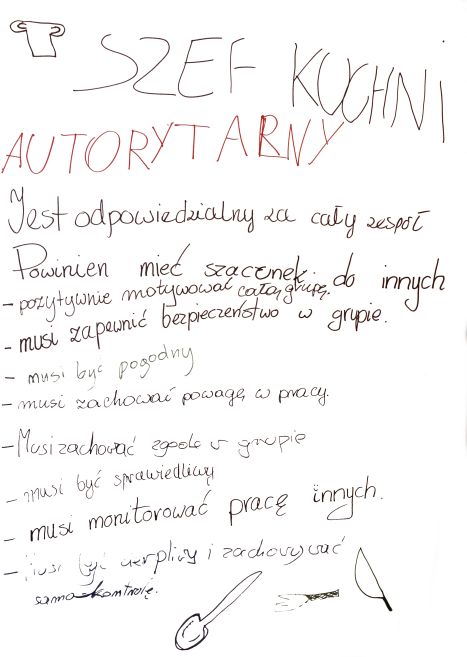 SZEF KUCHNI
AUTORYTARNY
Jest odpowiedzialny za cały zespół
Powinien mieć szacunek do innych
- pozytywnie motywować całą grupę.
- musi zapewnić bezpieczeństwo w grupie.
- musi być pogodny
- musi zachować powagę w pracy.
- Musi zachować zgodę w grupie
- musi być sprawiedliwy
- musi monitorować pracę innych.
- Musi być cierpliwy i zachowywać
samokontrolę.